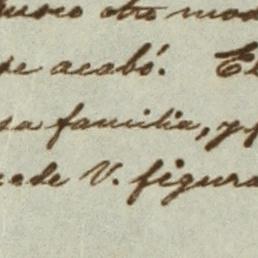 otro mod
se acabó. El
sa familia, y
ede V. figura